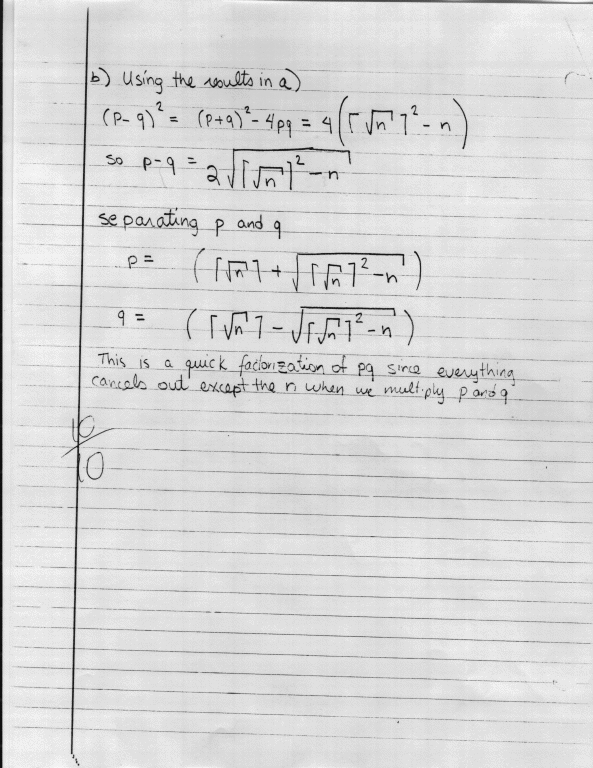 b) Using the results in a)
(p-q)² = (p+q)² - 4pq = 4(⌈√n⌉² - n)
so p-q = 2√(⌈√n⌉² - n)
separating p and q
p = (⌈√n⌉ + √(⌈√n⌉² - n))
q = (⌈√n⌉ - √(⌈√n⌉² - n))
This is a quick factorization of pq since everything
cancels out except the n when we multiply p and q
10/10